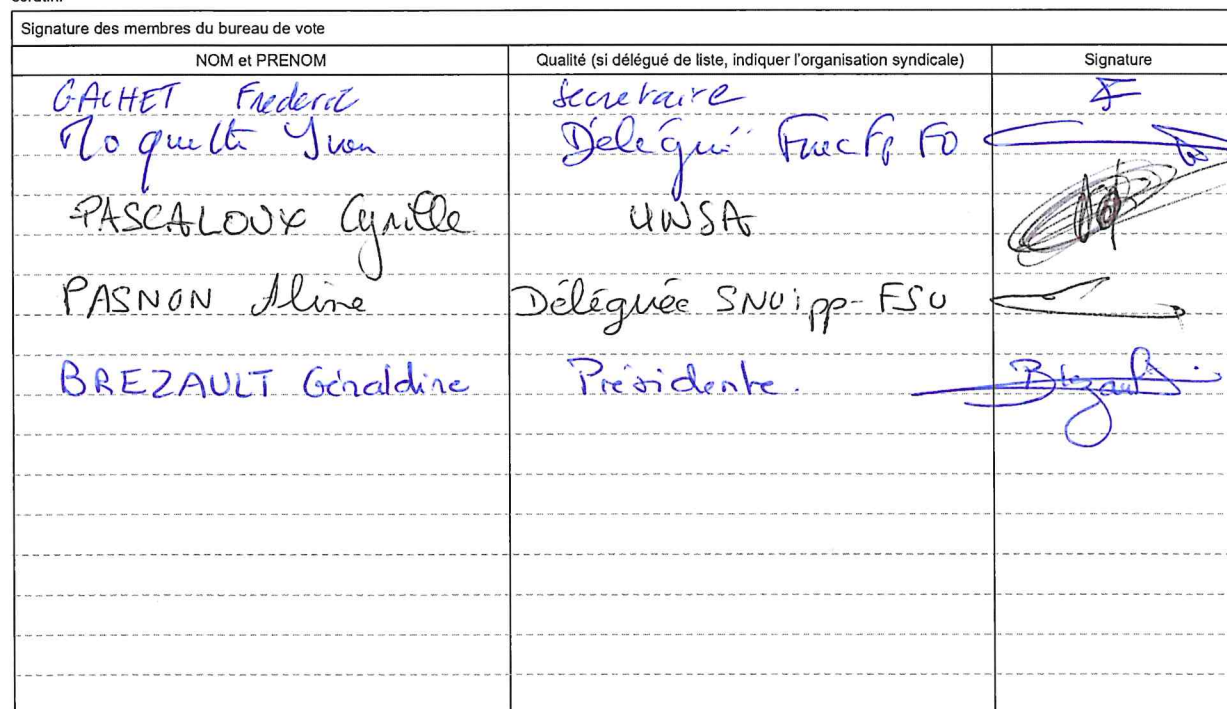 scrutin.
Signature des membres du bureau de vote
NOM et PRENOM Qualité (si délégué de liste, indiquer l'organisation syndicale) Signature
GACHET Frederic Secretaire
Moquette Yvon Délégué FnecFp FO
PASCALOUX Cyrille UNSA
PASNON Aline Déléguée SNUipp-FSU
BREZAULT Géraldine Présidente. Brezault